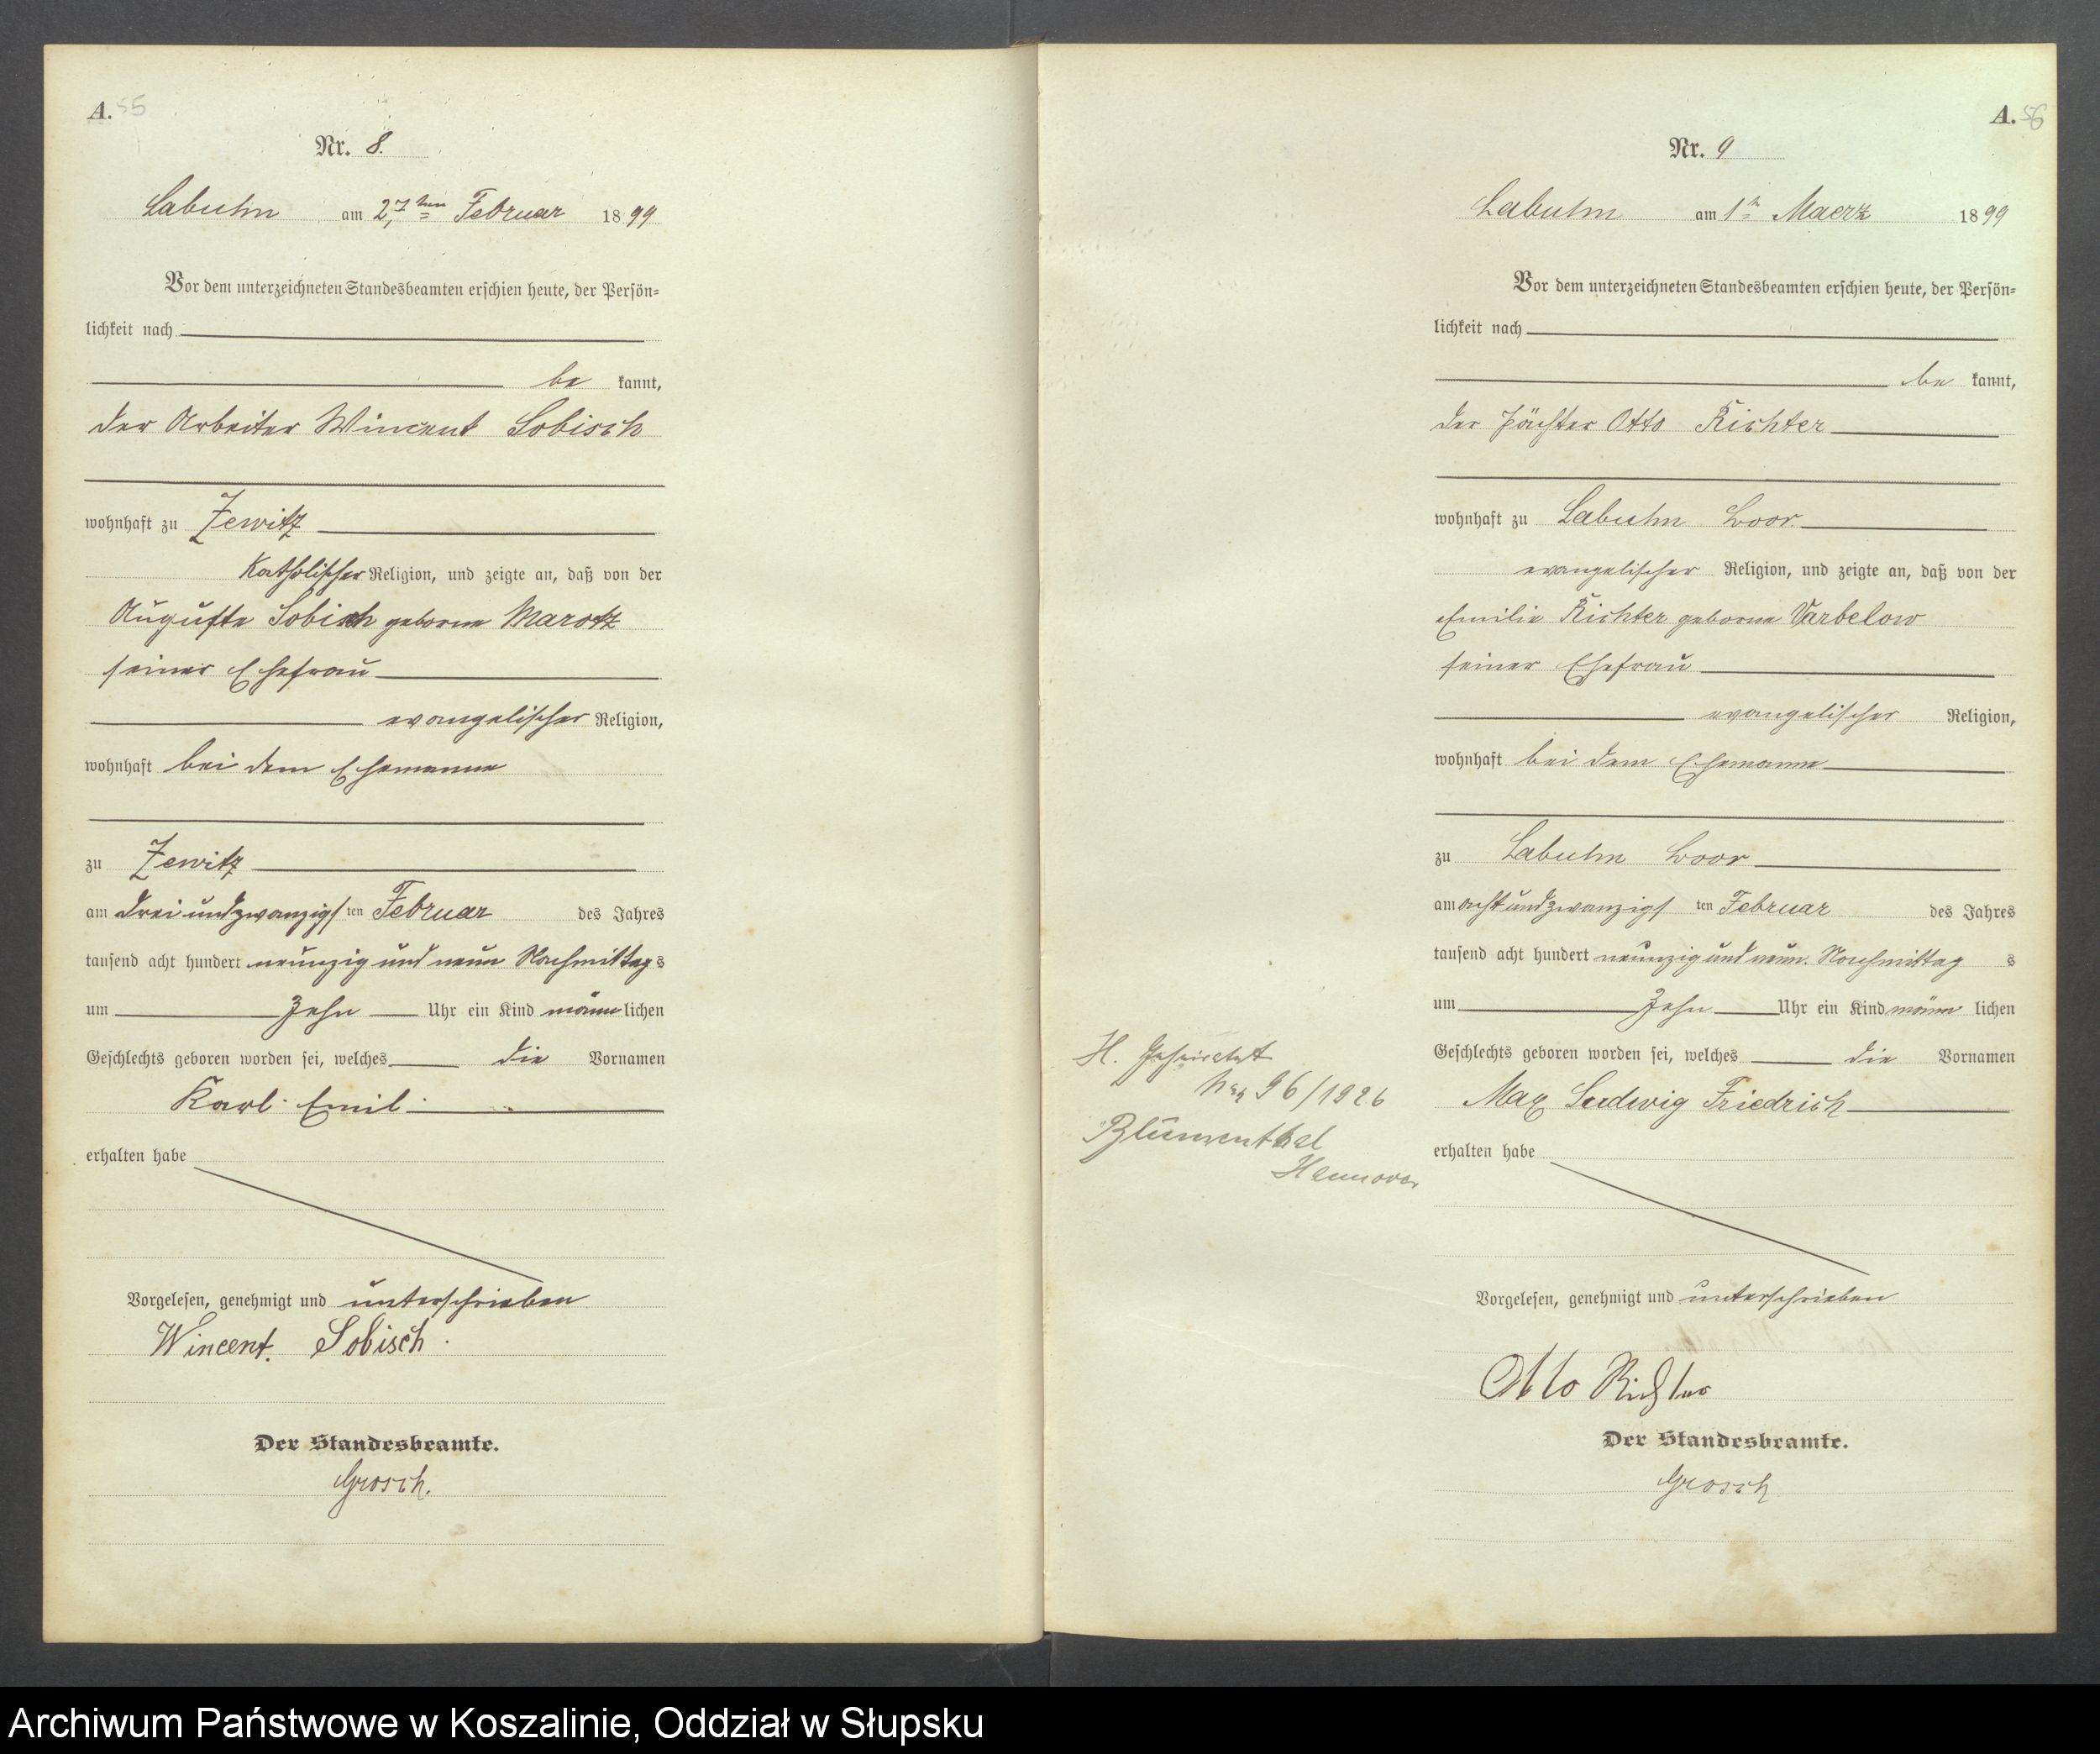 A. 55
Nr. 8.
Labuhn am 27ten Februar 1899
Vor dem unterzeichneten Standesbeamten erschien heute, der Persön-
lichkeit nach
be kannt,
der Arbeiter Wincent Sobisch
wohnhaft zu Zewitz
Katholischer Religion, und zeigte an, daß von der
Auguste Sobisch geborne Marotz
seiner Ehefrau
evangelischer Religion,
wohnhaft bei dem Ehemanne
zu Zewitz
am dreiundzwanzigsten Februar des Jahres
tausend acht hundert neunzig und neun Nachmittags
um Zehn Uhr ein Kind männlichen
Geschlechts geboren worden sei, welches die Vornamen
Karl Emil
erhalten habe
Vorgelesen, genehmigt und unterschrieben
Wincent. Sobisch.
Der Standesbeamte.
Grosch.
A. 56
Nr. 9
Labuhn am 1ten Maerz 1899
Vor dem unterzeichneten Standesbeamten erschien heute, der Persön-
lichkeit nach
be kannt,
der Pächter Otto Richter
wohnhaft zu Labuhn
evangelischer Religion, und zeigte an, daß von der
Emilie Richter geborne Varbelow
seiner Ehefrau
evangelischer Religion,
wohnhaft bei dem Ehemanne
zu Labuhn
am achtundzwanzigsten Februar des Jahres
tausend acht hundert neunzig und neun. Nachmittags
um Zehn Uhr ein Kind männlichen
Geschlechts geboren worden sei, welches die Vornamen
Max Ludwig Friedrich
erhalten habe
Vorgelesen, genehmigt und unterschrieben
Otto Richter
Der Standesbeamte.
Grosch
H. Geheiratet
96/1926
Blumenthal
Hannover
Archiwum Państwowe w Koszalinie, Oddział w Słupsku